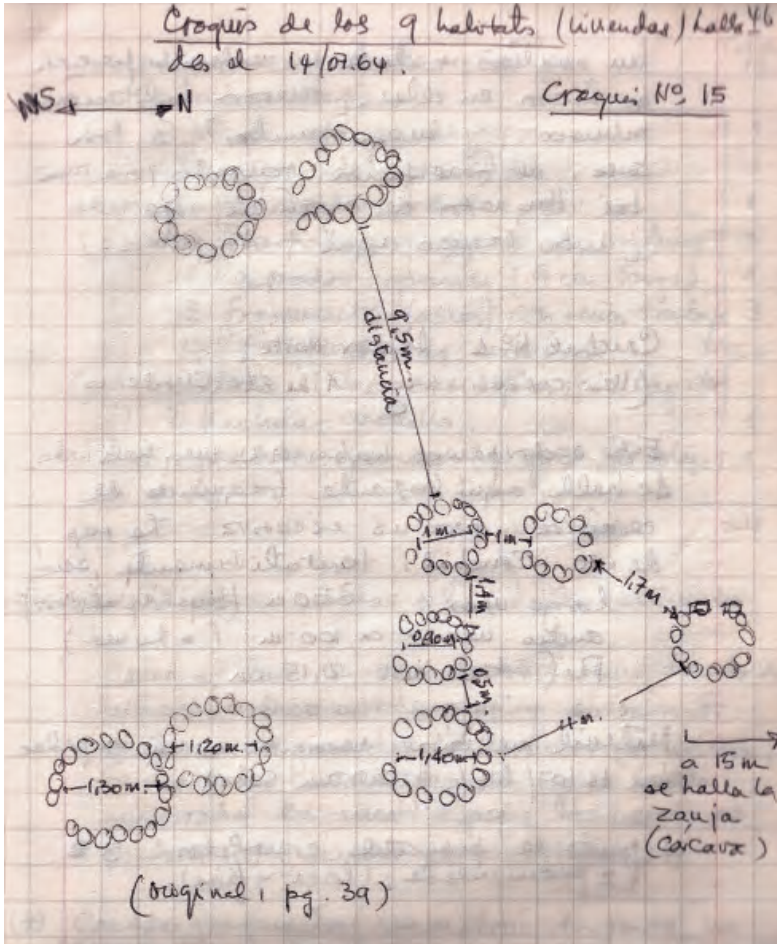 Croquis de los 9 habitats (viviendas) halla 46
dos el 14/07.64.
Croquis Nº 15
S N
9,5m.
distancia
1m. 1m
1,7m
1,4m
0,90m
0,5m
4m.
1,40m
1,20m.
1,30m
a 15m
se halla la
zanja
(Cárcava)
(Original, pg. 39)